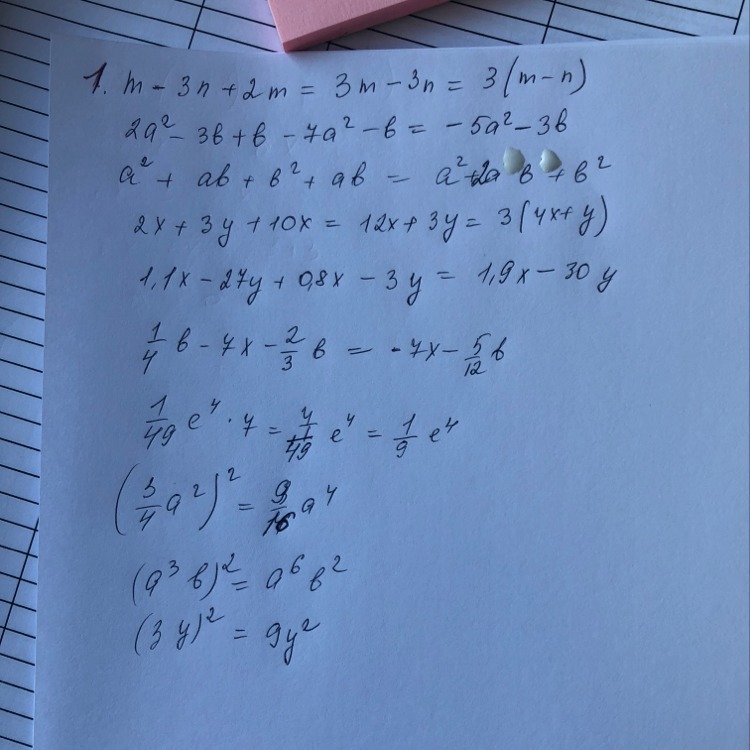 1. m - 3n + 2m = 3m - 3n = 3(m - n)
2a² - 3b + b - 7a² - b = -5a² - 3b
a² + ab + b² + ab = a² + 2a b + b²
2x + 3y + 10x = 12x + 3y = 3(4x + y)
1,1x - 27y + 0,8x - 3y = 1,9x - 30y
1/4 b - 7x - 2/3 b = -7x - 5/12 b
1/49 e⁴ · 7 = 7/49 e⁴ = 1/9 e⁴
(3/4 a²)² = 9/16 a⁴
(a³ b)² = a⁶ b²
(3y)² = 9y²